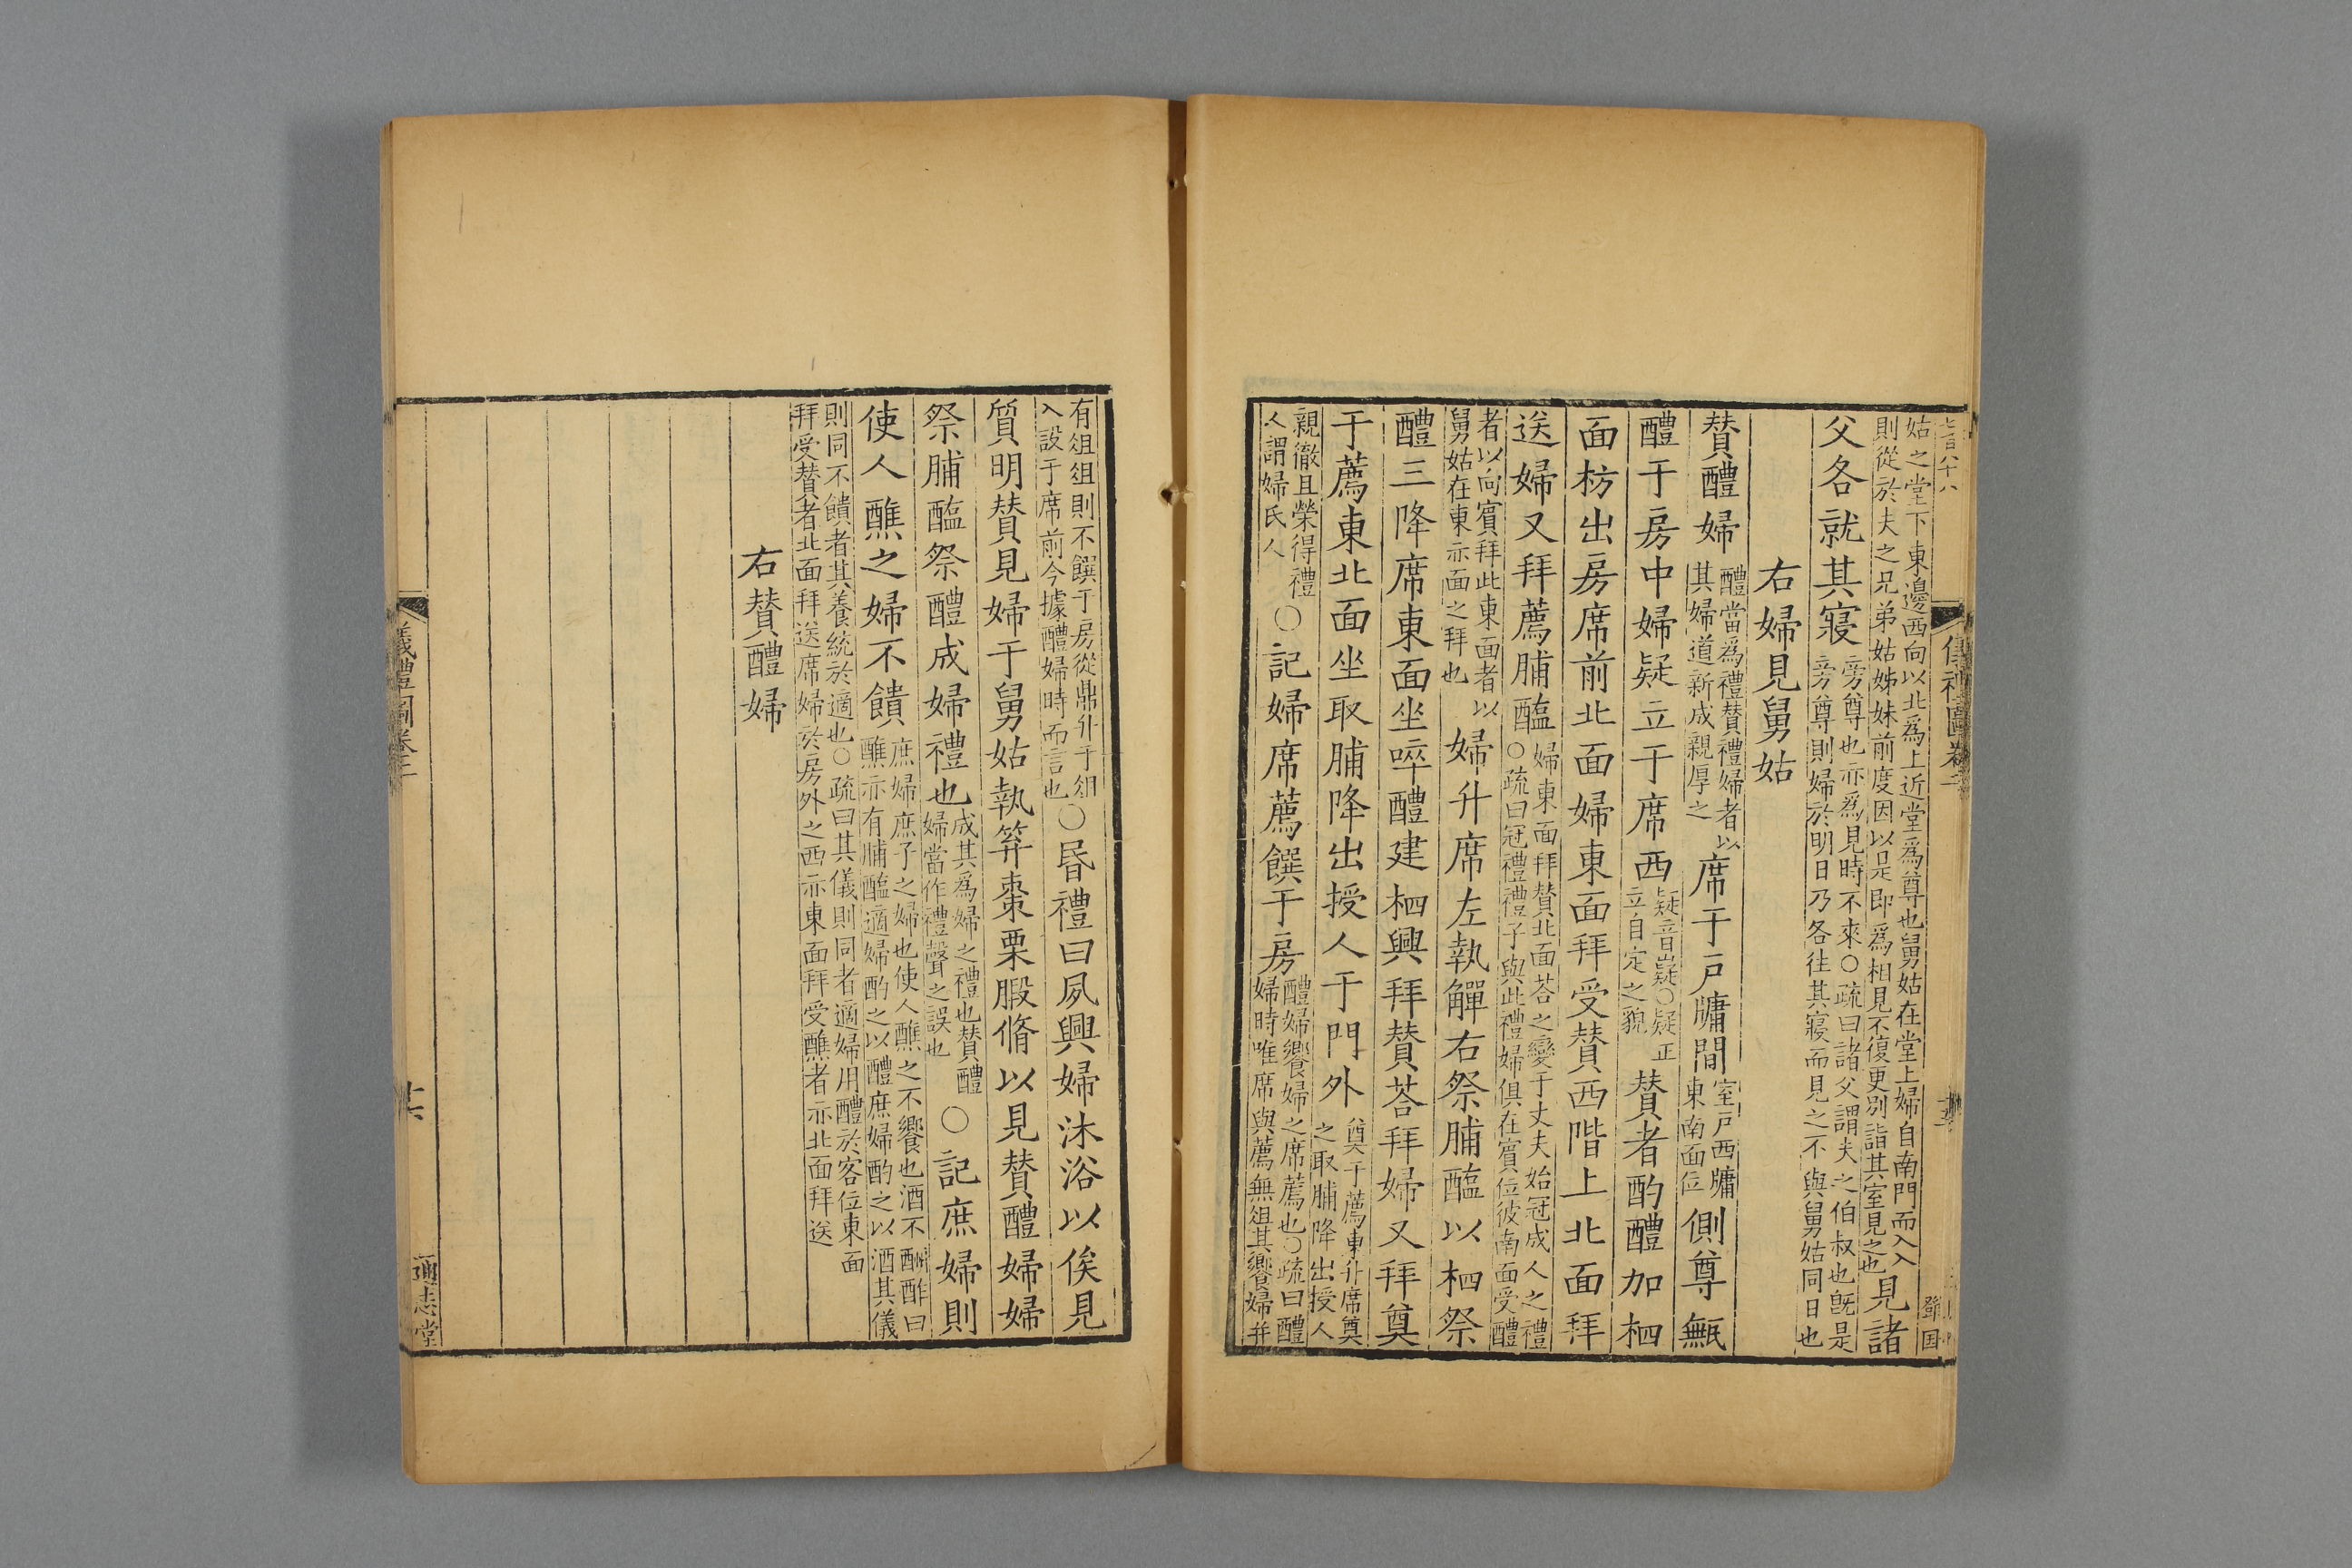 姑之堂下東邊西向以北爲上近堂爲尊也舅姑在堂上婦自南門而入入
則從於夫之兄弟姑姊妹前度因以是即爲相見不復更別詣其室見之也
見諸
父各就其寢
旁尊也亦爲見時不來○疏曰諸父謂夫之伯叔也旣是
旁尊則婦於明日乃各往其寢而見之不與舅姑同日也
右婦見舅姑
贊醴婦
醴當爲禮贊禮婦者以
其婦道新成親厚之
席于戶牖間
室戶西牖
東南面位
側尊甒
醴于房中婦疑立于席西
疑音嶷○疑正
立自定之貌
贊者酌醴加柶
面枋出房席前北面婦東面拜受贊西階上北面拜
送婦又拜薦脯醢
婦東面拜贊北面荅之變于丈夫始冠成人之禮
○疏曰冠禮禮子與此禮婦俱在賓位彼南面受醴
者以向賓拜此東面者以
舅姑在東亦面之拜也
婦升席左執觶右祭脯醢以柶祭
醴三降席東面坐啐醴建柶興拜贊荅拜婦又拜奠
于薦東北面坐取脯降出授人于門外
奠于薦東升席奠
之取脯降出授人
親徹且榮得禮
人謂婦氏人
○記婦席薦饌于房
醴婦饗婦之席薦也○疏曰醴
婦時唯席與薦無俎其饗婦并
有俎俎則不饌于房從鼎升于俎
入設于席前今據醴婦時而言也
○昏禮曰夙興婦沐浴以俟見
質明贊見婦于舅姑執笲棗栗腶脩以見贊醴婦婦
祭脯醢祭醴成婦禮也
成其爲婦之禮也贊醴
婦當作禮聲之誤也
○記庶婦則
使人醮之婦不饋
庶婦庶子之婦也使人醮之不饗也酒不酬酢曰
醮亦有脯醢適婦酌之以醴庶婦酌之以酒其儀
則同不饋者其養統於適也○疏曰其儀則同者適婦用醴於客位東面
拜受贊者北面拜送席婦於房外之西亦東面拜受醮者亦北面拜送
右贊醴婦
儀禮圖卷二
通志堂